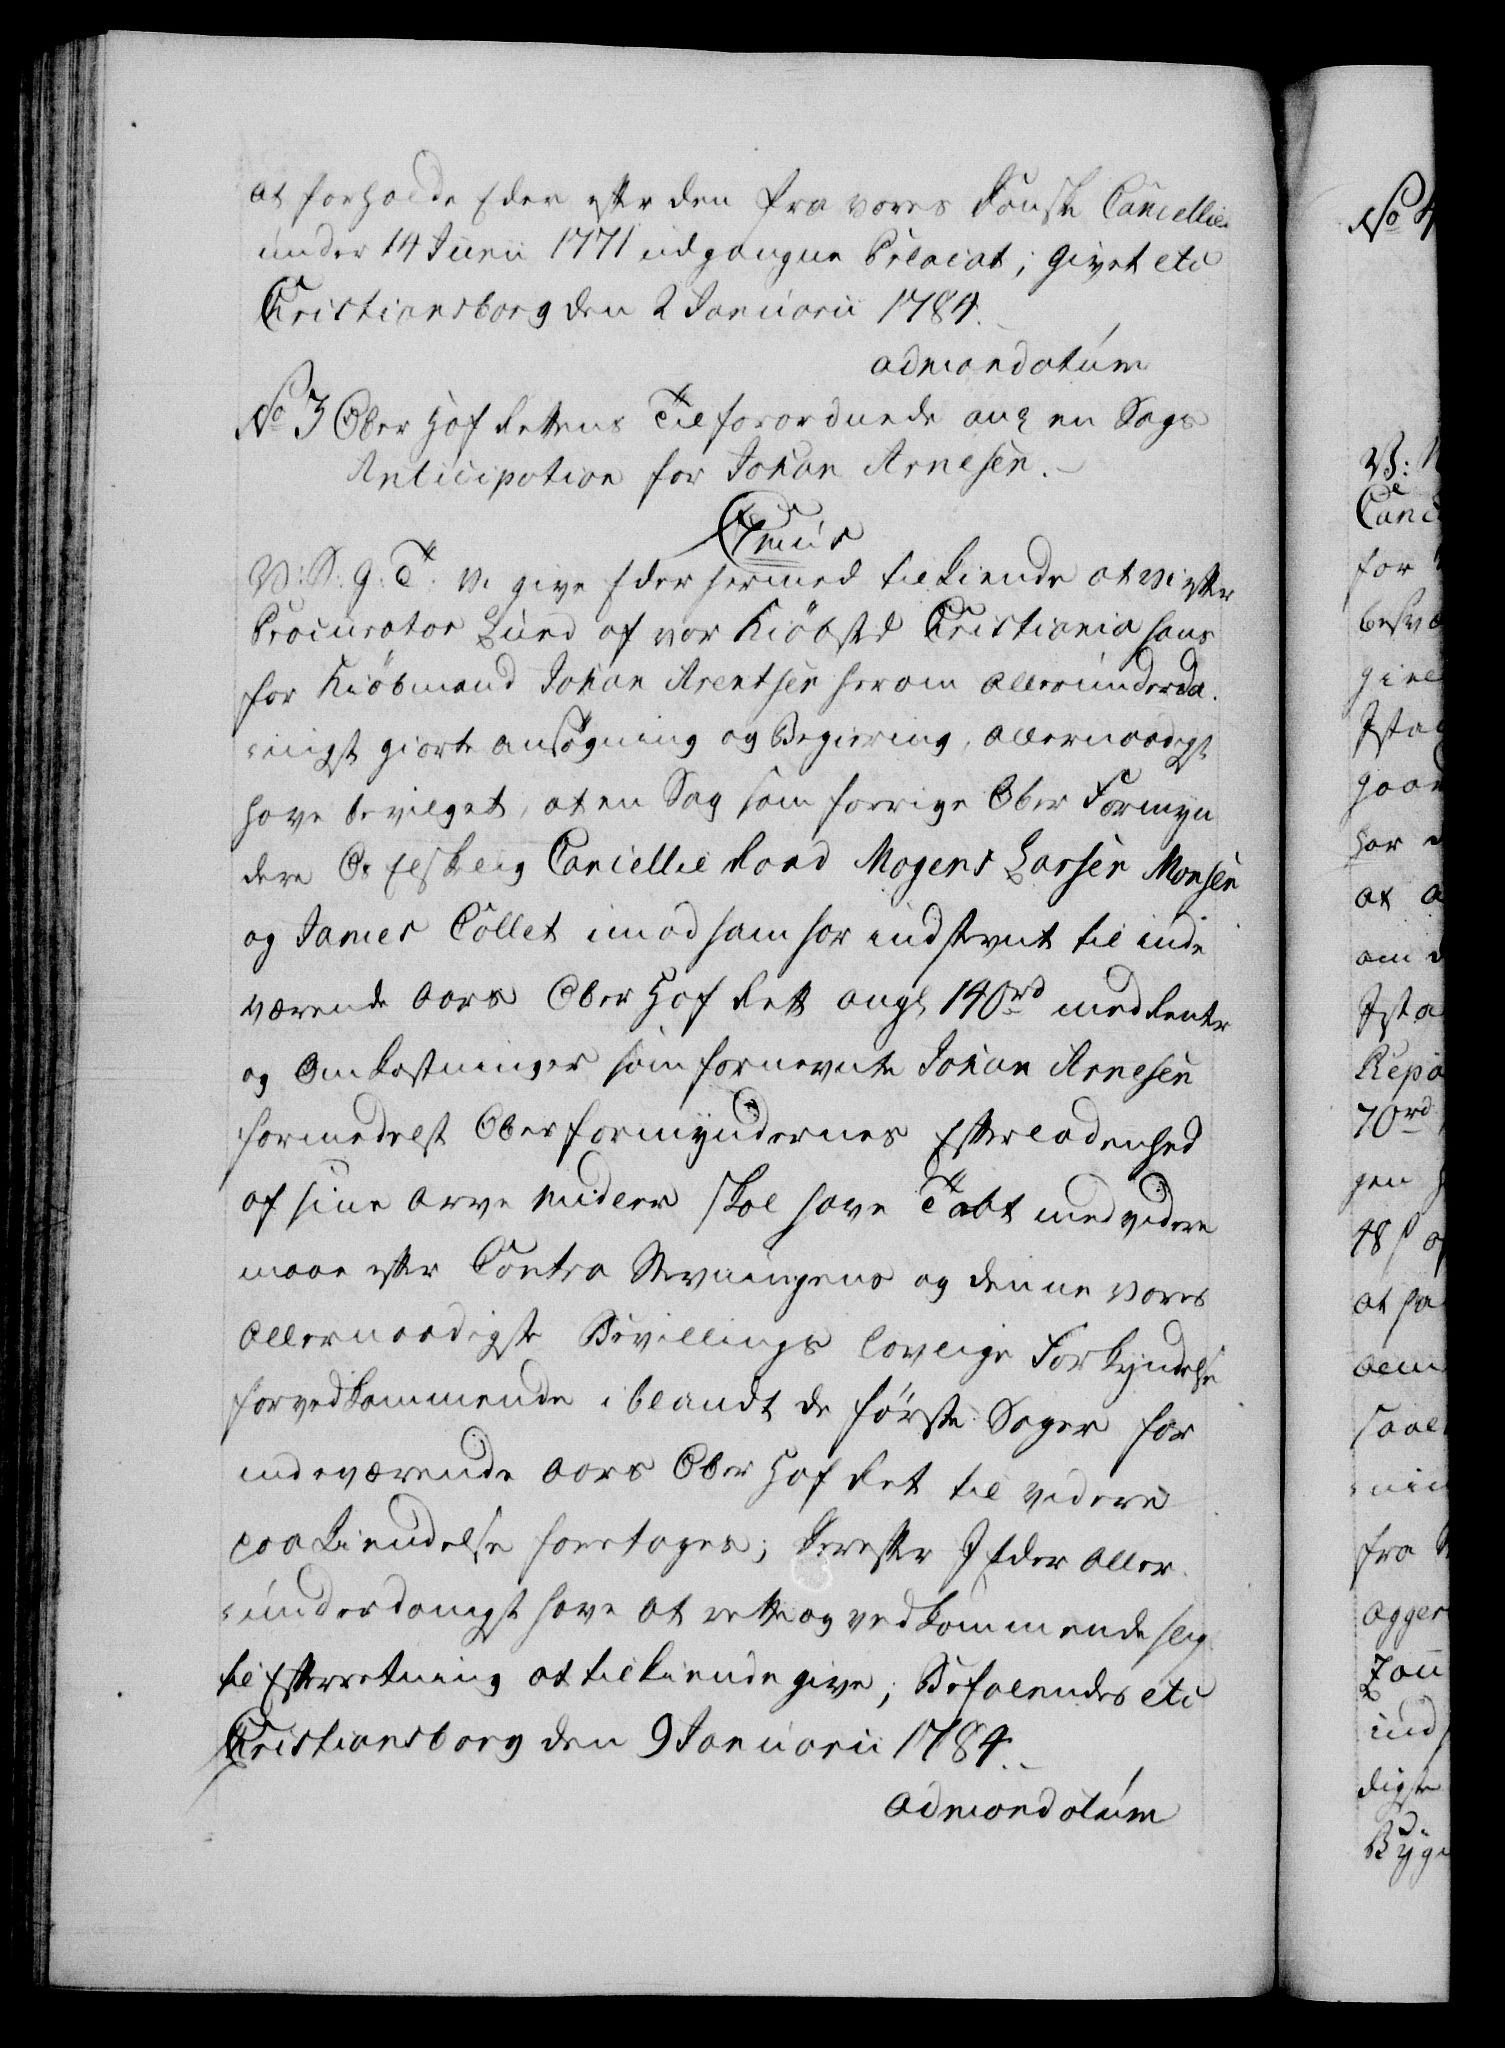 at forholde Eder efter den fra vores Danske Cancellie
under 14 Junii 1771 udgangne Placat; Givet etc
Christiansborg den 2 Januarii 1784.
admandatum
No 3 Ober Hof Rettens Tilforordnede ang en Sags
Anticipation for Johan Arnesen.
C7mus
V: S: G: T: Vi give Eder hermed tilkiende at vi efter
Procurator Lund af vor Kiöbsted Christiania hans
for Kiöbmand Johan Arentsen herom allerunderda-
nigst giorte ansögning og Begiering, allernaadigst
have bevilget, at en Sag som forrige Ober Formyn
dere Os Elskelig Cancellie Raad Mogens Larsen Monsen
og James Collet imod ham har indstevnt til inde
værende Aars Ober Hof Rett angl 140rd med Renter
og Omkostninger som fornevnte Johan Arnesen
formedelst Oberformyndernes Efterladenhed
af sine Arve Midler skal have Tabt med videre
maae efter Contra Stevningens og denne vores
allernaadigste Bevillings lovlige Forkyndelse
for vedkommende iblandt de förste Sager for
indeværende Aars Ober Hof Ret til videre
paa Kiendelse foretages; Derefter I Eder aller-
underdanigst have at rette og vedkommende slig
til Efterretning at tilkiende give; Befalendes etc
Christiansborg den 9 Januarii 1784.
admandatum
No 4
V:
Canc
for
besvæ
giel
Ista
gaae
har
at
om d
Ista
Repa
70rd
gen
48 s
at ha
alm
saal
nin
fra
Agger
Lau
ind
digste
Byg